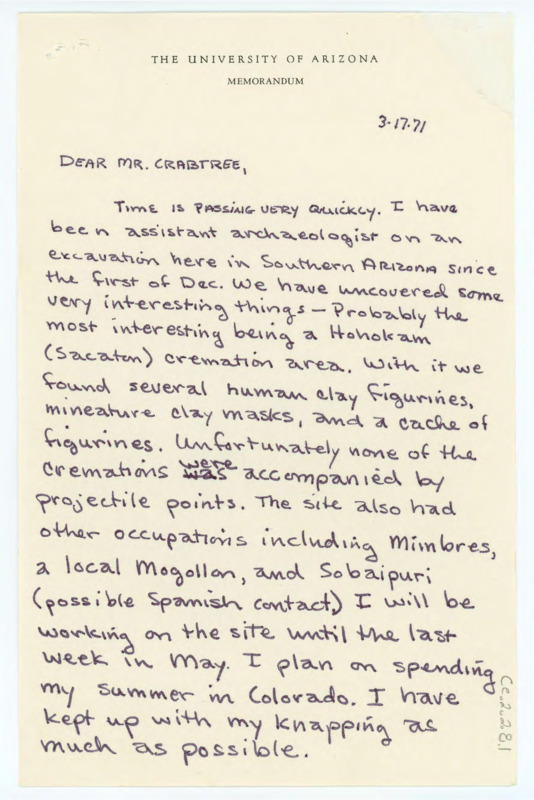 THE UNIVERSITY OF ARIZONA
MEMORANDUM
3-17-71
DEAR MR. CRABTREE,
Time is PASSING VERY QUICKLY. I have
been assistant archaeologist on an
excavation here in Southern ARIZONA since
the first of Dec. We have uncovered some
very interesting things - Probably the
most interesting being a Hohokam
(Sacaton) cremation area. With it we
found several human clay figurines,
mineature clay masks, and a cache of
figurines. Unfortunately none of the
cremations was were accompanied by
projectile points. The site also had
other occupations including Mimbres,
a local Mogollon, and Sobaipuri
(possible Spanish contact). I will be
working on the site until the last
week in May. I plan on spending
my summer in Colorado. I have
kept up with my knapping as
much as possible.
Cc.2.28.1